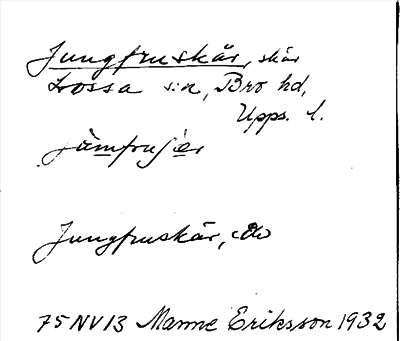 Jungfruskär, skär
Lossa s:n, Bro hd,
Upps. l.
Jungfruskär, do
75 NV 13 Manne Eriksson 1932